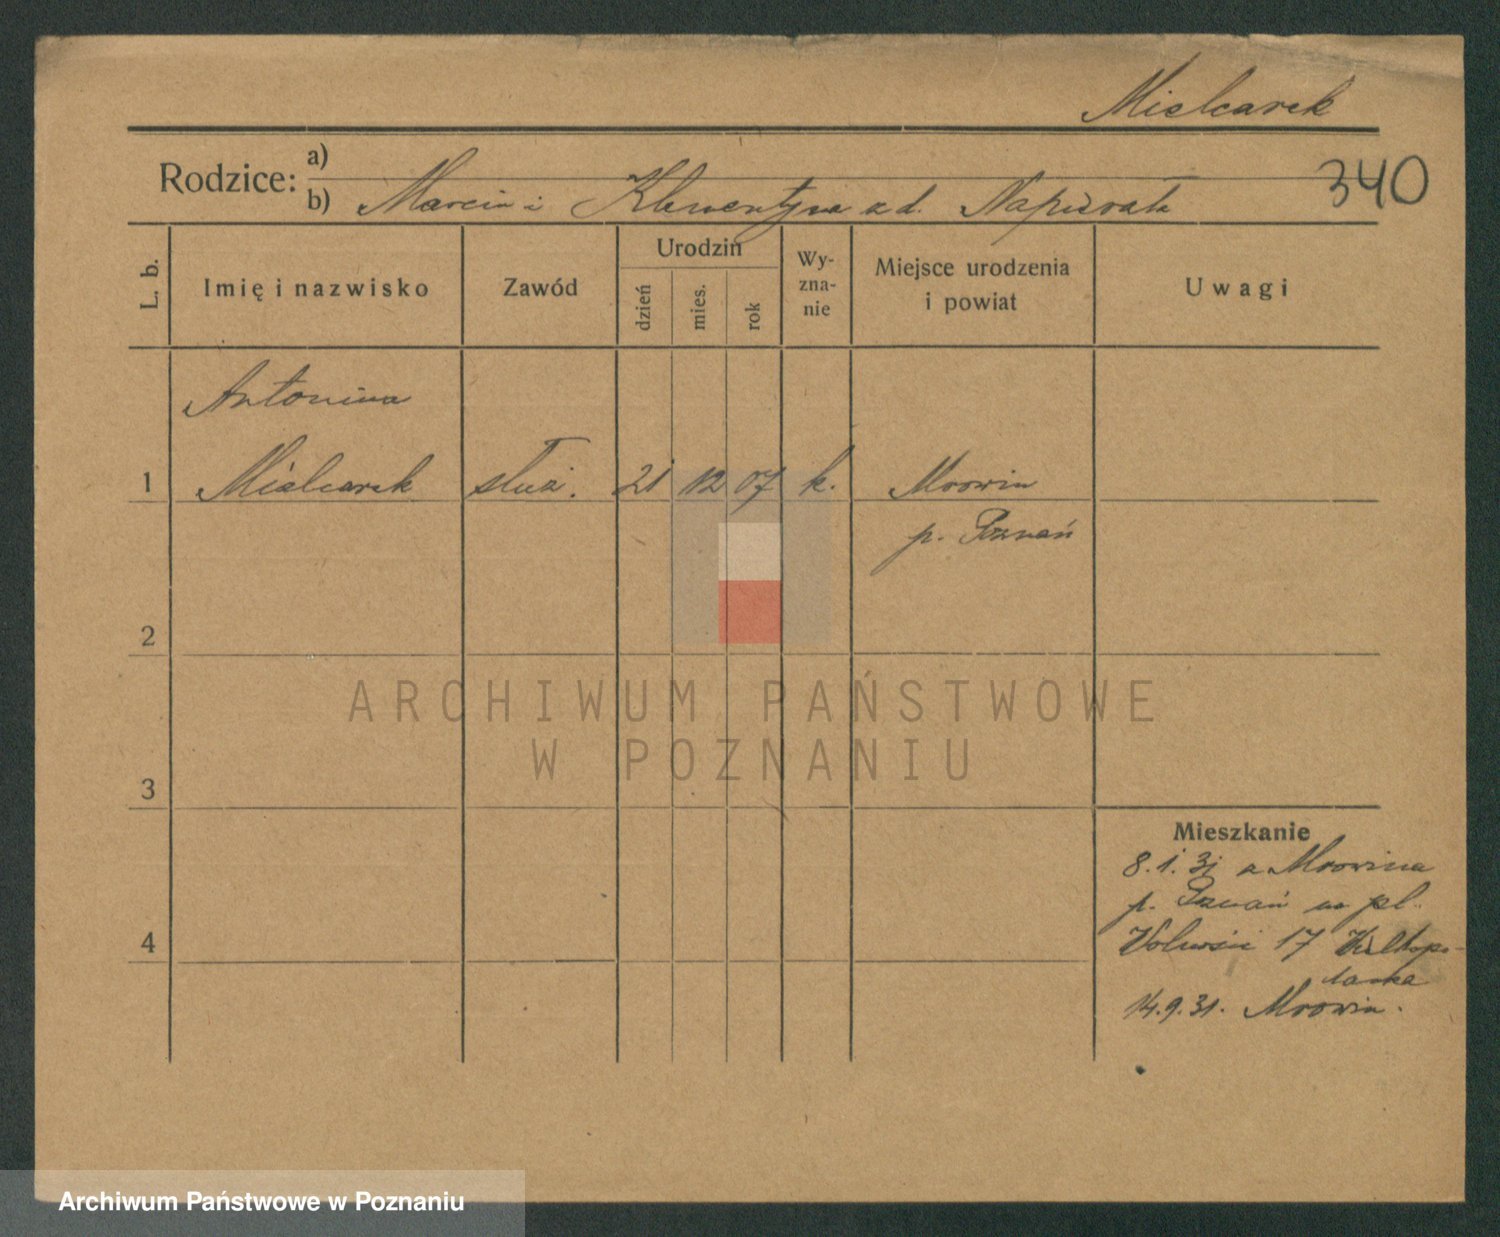 Mielcarek
340
Rodzice: a)
b) Marcin i Klementyna z d. Napierała
L. b.
Imię i nazwisko
Zawód
Urodzin
dzień
mies.
rok
Wy-
zna-
nie
Miejsce urodzenia
i powiat
Uwagi
Antonina
1 Mielcarek służ. 21 12 07 k. Mrowin
p. Poznań
2
3
4
ARCHIWUM PAŃSTWOWE
W POZNANIU
Mieszkanie
8.1.31 z Mrowina
p. Poznań na pl.
17 Wielkopo-
lanka
14.9.31. Mrowin.
Archiwum Państwowe w Poznaniu